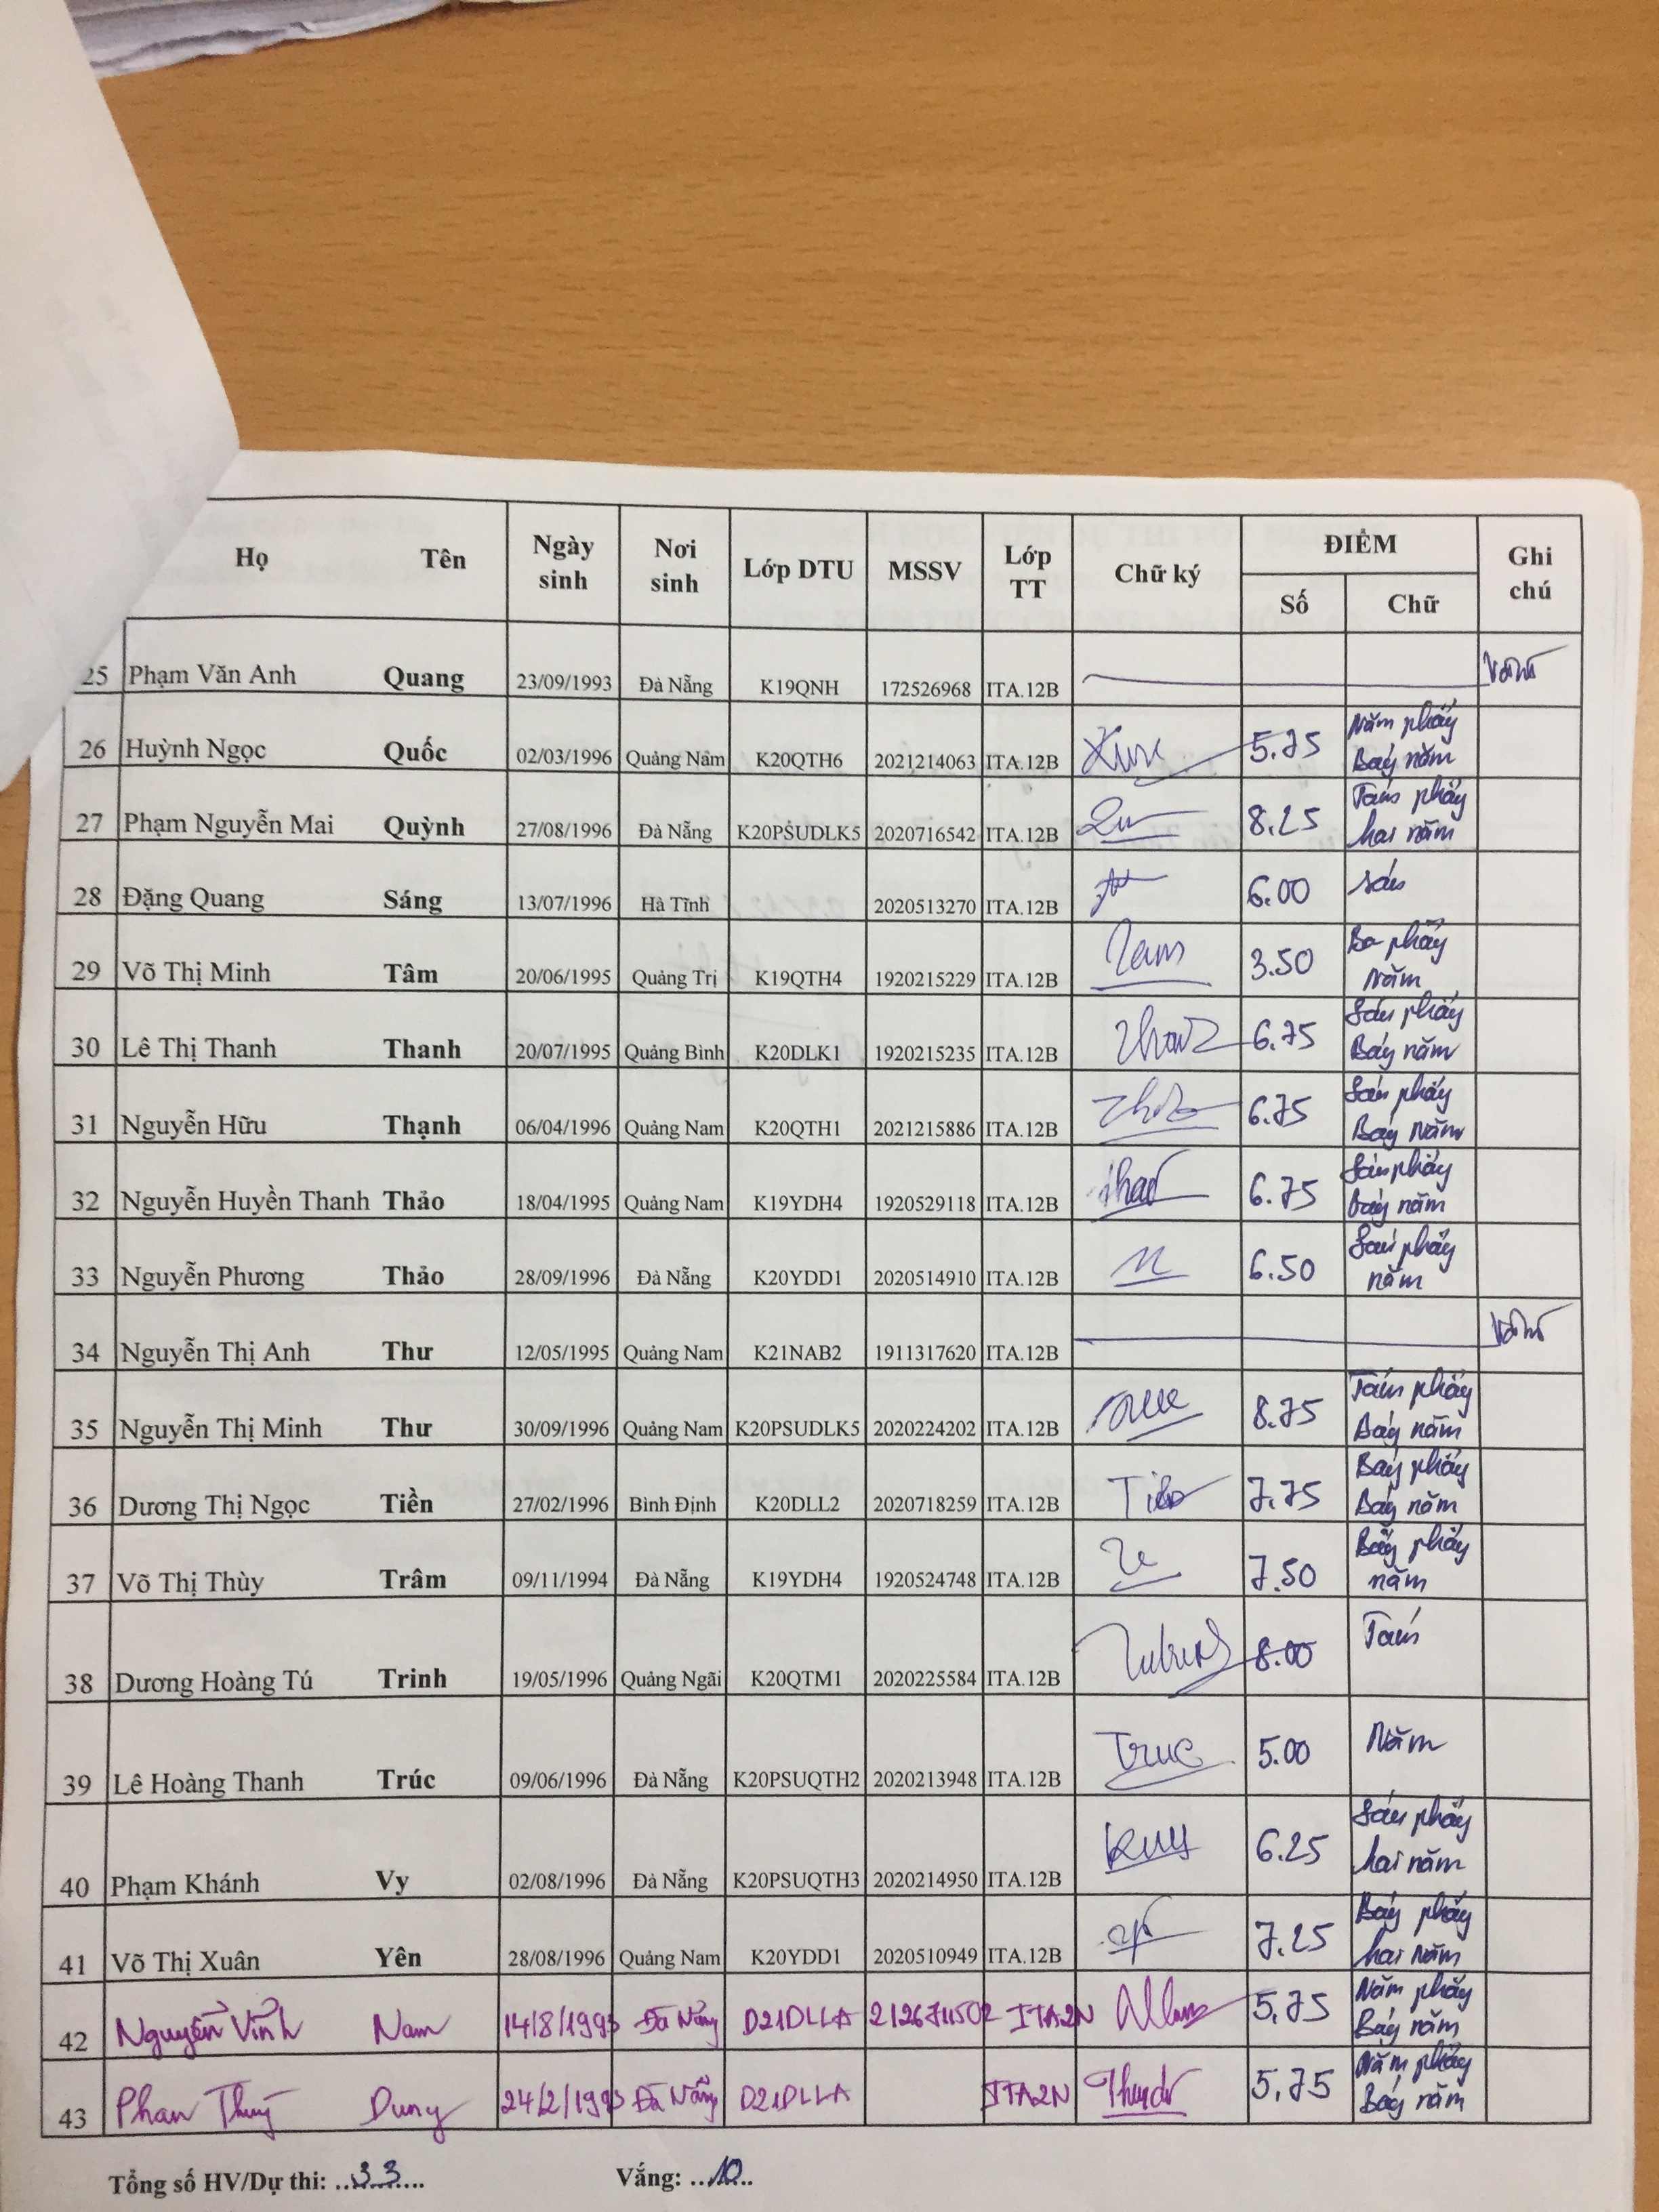 Họ Tên Ngày sinh Nơi sinh Lớp DTU MSSV Lớp TT Chữ ký ĐIỂM Số Chữ Ghi chú
25 Phạm Văn Anh Quang 23/09/1993 Đà Nẵng K19QNH 172526968 ITA.12B Vắng
26 Huỳnh Ngọc Quốc 02/03/1996 Quảng Nâm K20QTH6 2021214063 ITA.12B 5.75 Năm phẩy Bảy năm
27 Phạm Nguyễn Mai Quỳnh 27/08/1996 Đà Nẵng K20PSUDLK5 2020716542 ITA.12B 8.25 Tám phẩy hai năm
28 Đặng Quang Sáng 13/07/1996 Hà Tĩnh 2020513270 ITA.12B 6.00 Sáu
29 Võ Thị Minh Tâm 20/06/1995 Quảng Trị K19QTH4 1920215229 ITA.12B Tam 3.50 Ba phẩy năm
30 Lê Thị Thanh Thanh 20/07/1995 Quảng Bình K20DLK1 1920215235 ITA.12B 6.75 Sáu phẩy Bảy năm
31 Nguyễn Hữu Thạnh 06/04/1996 Quảng Nam K20QTH1 2021215886 ITA.12B 6.75 Sáu phẩy Bảy Năm
32 Nguyễn Huyền Thanh Thảo 18/04/1995 Quảng Nam K19YDH4 1920529118 ITA.12B thao 6.75 Sáu phẩy bảy năm
33 Nguyễn Phương Thảo 28/09/1996 Đà Nẵng K20YDD1 2020514910 ITA.12B 6.50 Sáu phẩy năm
34 Nguyễn Thị Anh Thư 12/05/1995 Quảng Nam K21NAB2 1911317620 ITA.12B Vắng
35 Nguyễn Thị Minh Thư 30/09/1996 Quảng Nam K20PSUDLK5 2020224202 ITA.12B 8.75 Tám phẩy Bảy năm
36 Dương Thị Ngọc Tiền 27/02/1996 Bình Định K20DLL2 2020718259 ITA.12B 7.75 Bảy phẩy Bảy năm
37 Võ Thị Thùy Trâm 09/11/1994 Đà Nẵng K19YDH4 1920524748 ITA.12B 7.50 Bảy phẩy năm
38 Dương Hoàng Tú Trinh 19/05/1996 Quảng Ngãi K20QTM1 2020225584 ITA.12B 8.00 Tám
39 Lê Hoàng Thanh Trúc 09/06/1996 Đà Nẵng K20PSUQTH2 2020213948 ITA.12B Truc 5.00 Năm
40 Phạm Khánh Vy 02/08/1996 Đà Nẵng K20PSUQTH3 2020214950 ITA.12B 6.25 Sáu phẩy hai năm
41 Võ Thị Xuân Yên 28/08/1996 Quảng Nam K20YDD1 2020510949 ITA.12B 7.25 Bảy phẩy hai năm
42 Nguyễn Vĩnh Nam 14/8/1993 Đà Nẵng D21DLLA 2126711502 ITA2N 5,75 Năm phẩy Bảy năm
43 Phan Thuỳ Dung 24/2/1993 Đà Nẵng D21DLLA ITA2N 5,75 Năm phẩy Bảy năm
Tổng số HV/Dự thi: ..33.... Vắng: ..10..